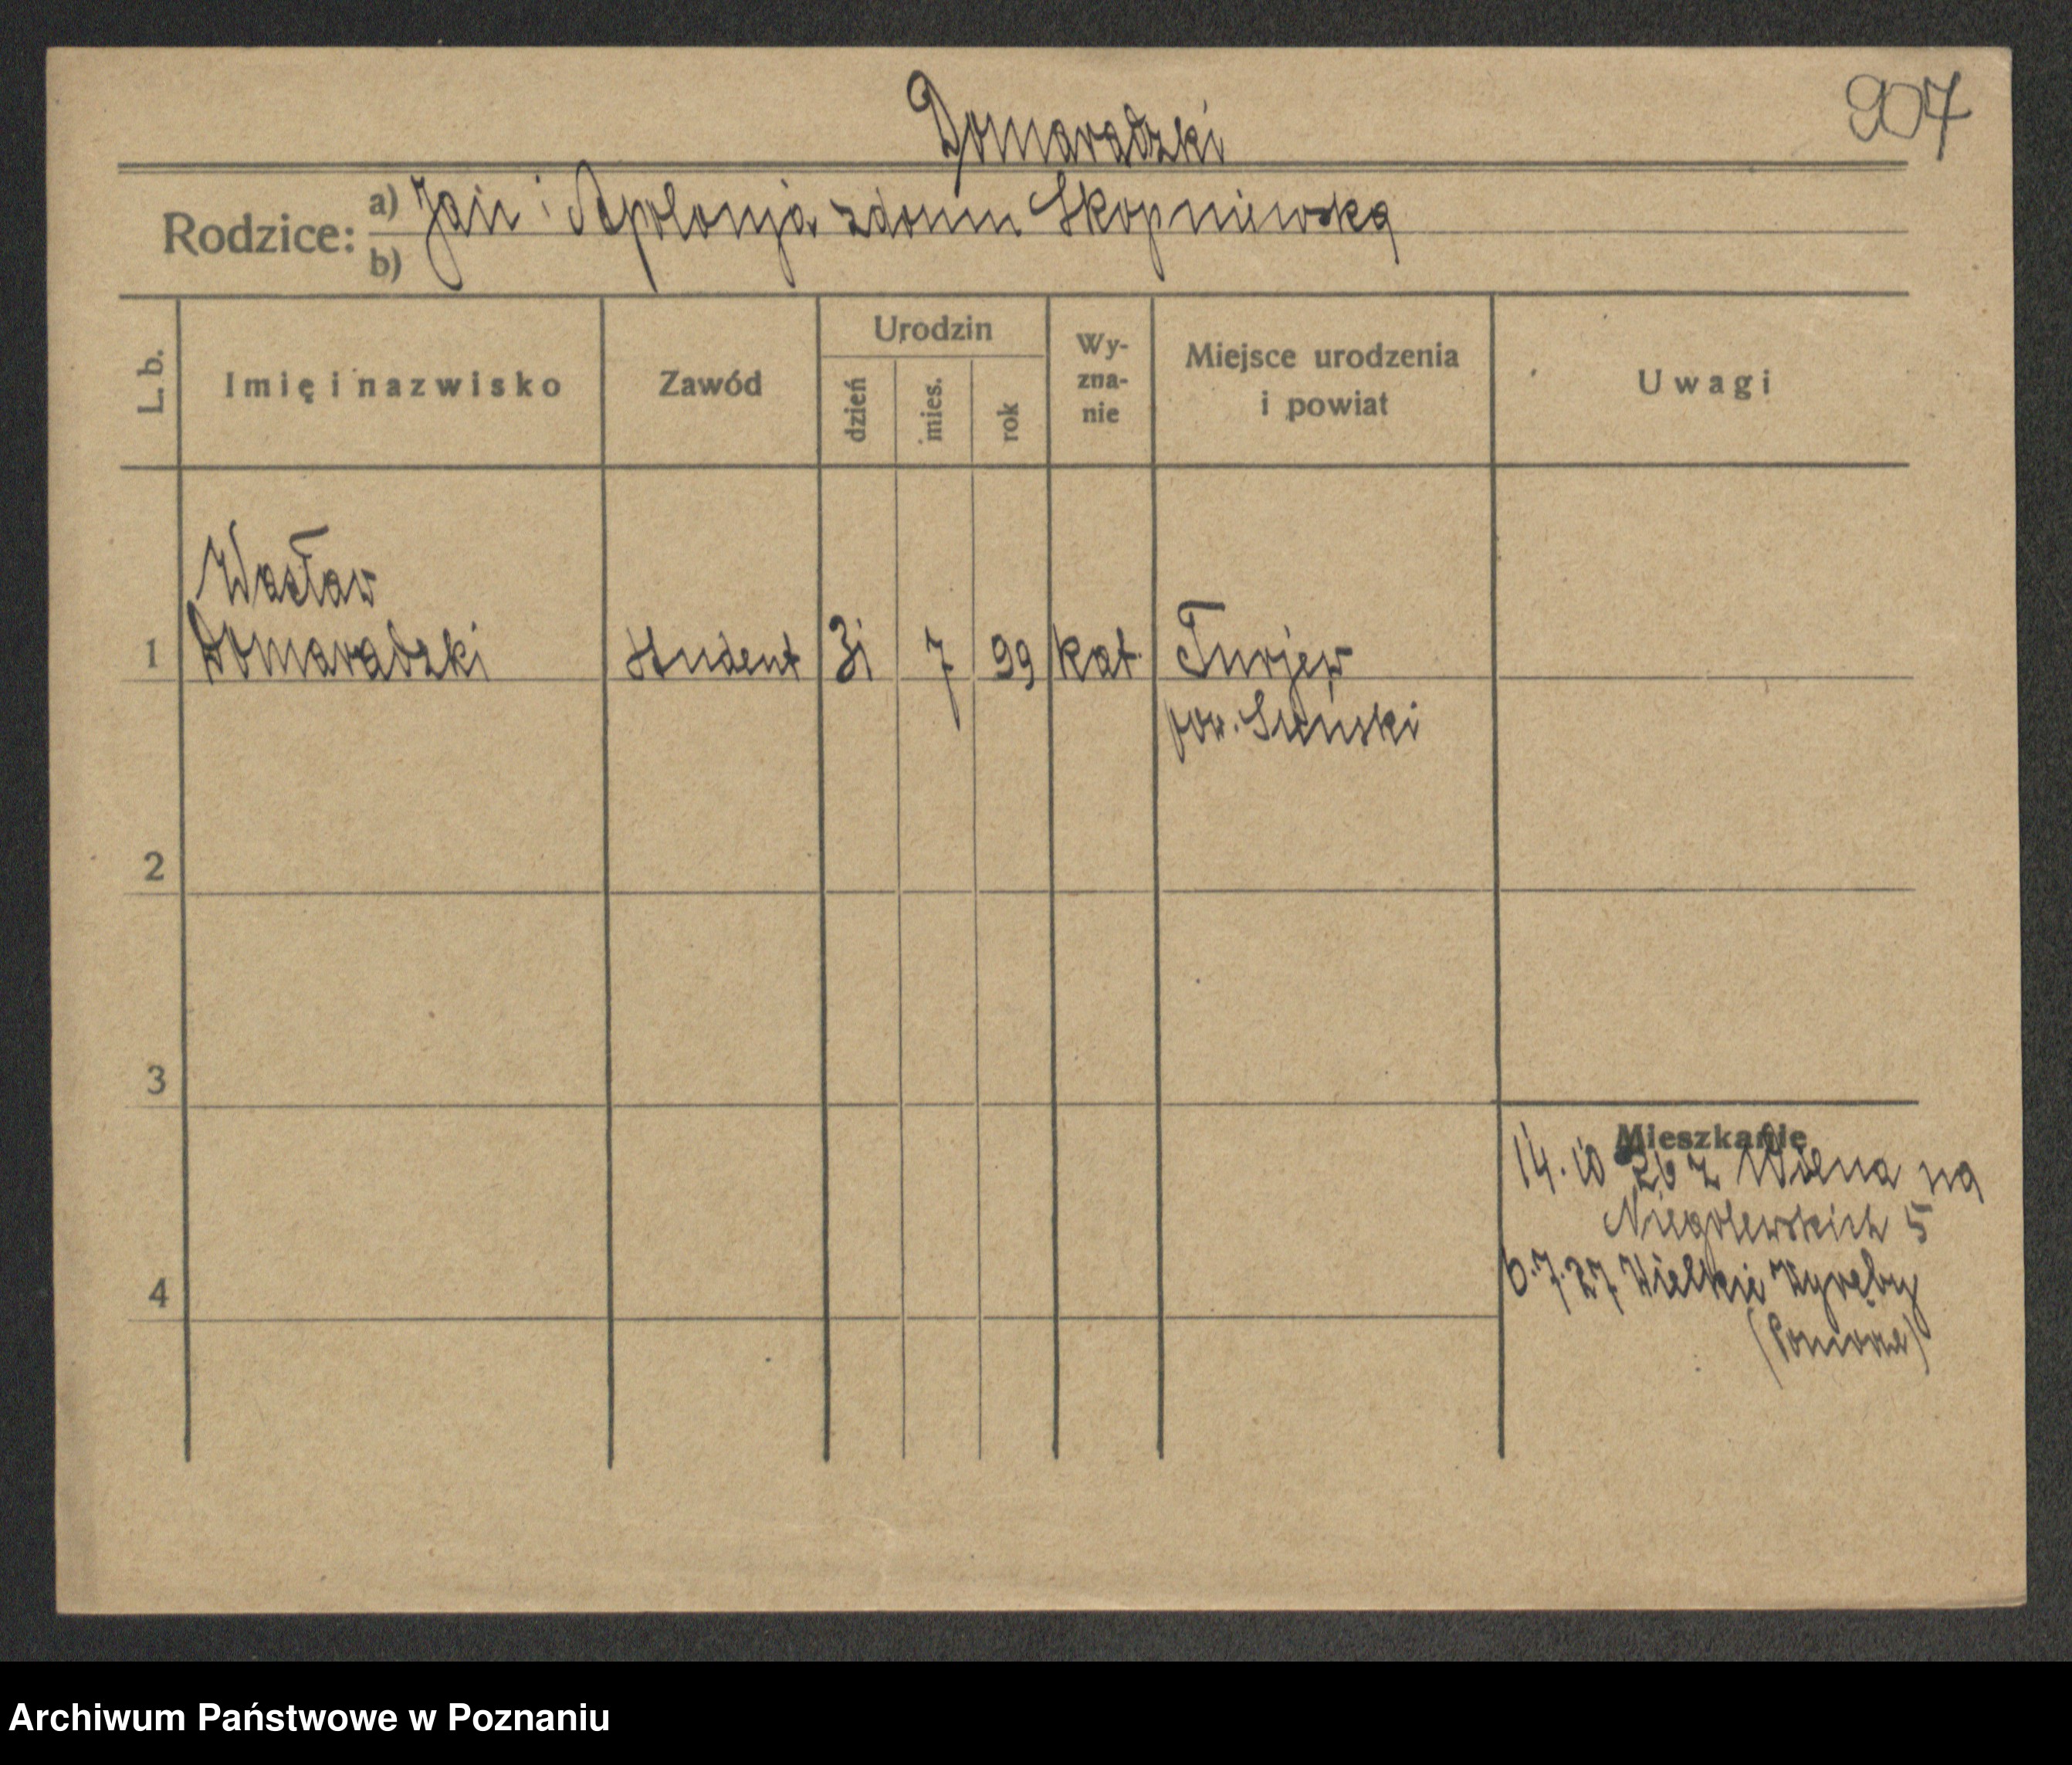 907
Domaradzki
Rodzice: a) Jan i Apolonja z domu Skopniewska
b)
L. b.
Imię i nazwisko
Zawód
Urodzin
dzień
mies.
rok
Wy-
zna-
nie
Miejsce urodzenia
i powiat
Uwagi
Wacław
1 Domaradzki Student 31 7 99 kat. Turjew
pow.
2
3
Mieszkanie
14.10 26 z Wilna na
Niegolewskich 5
6.7.27 Wielkie Wyręby
4
Archiwum Państwowe w Poznaniu